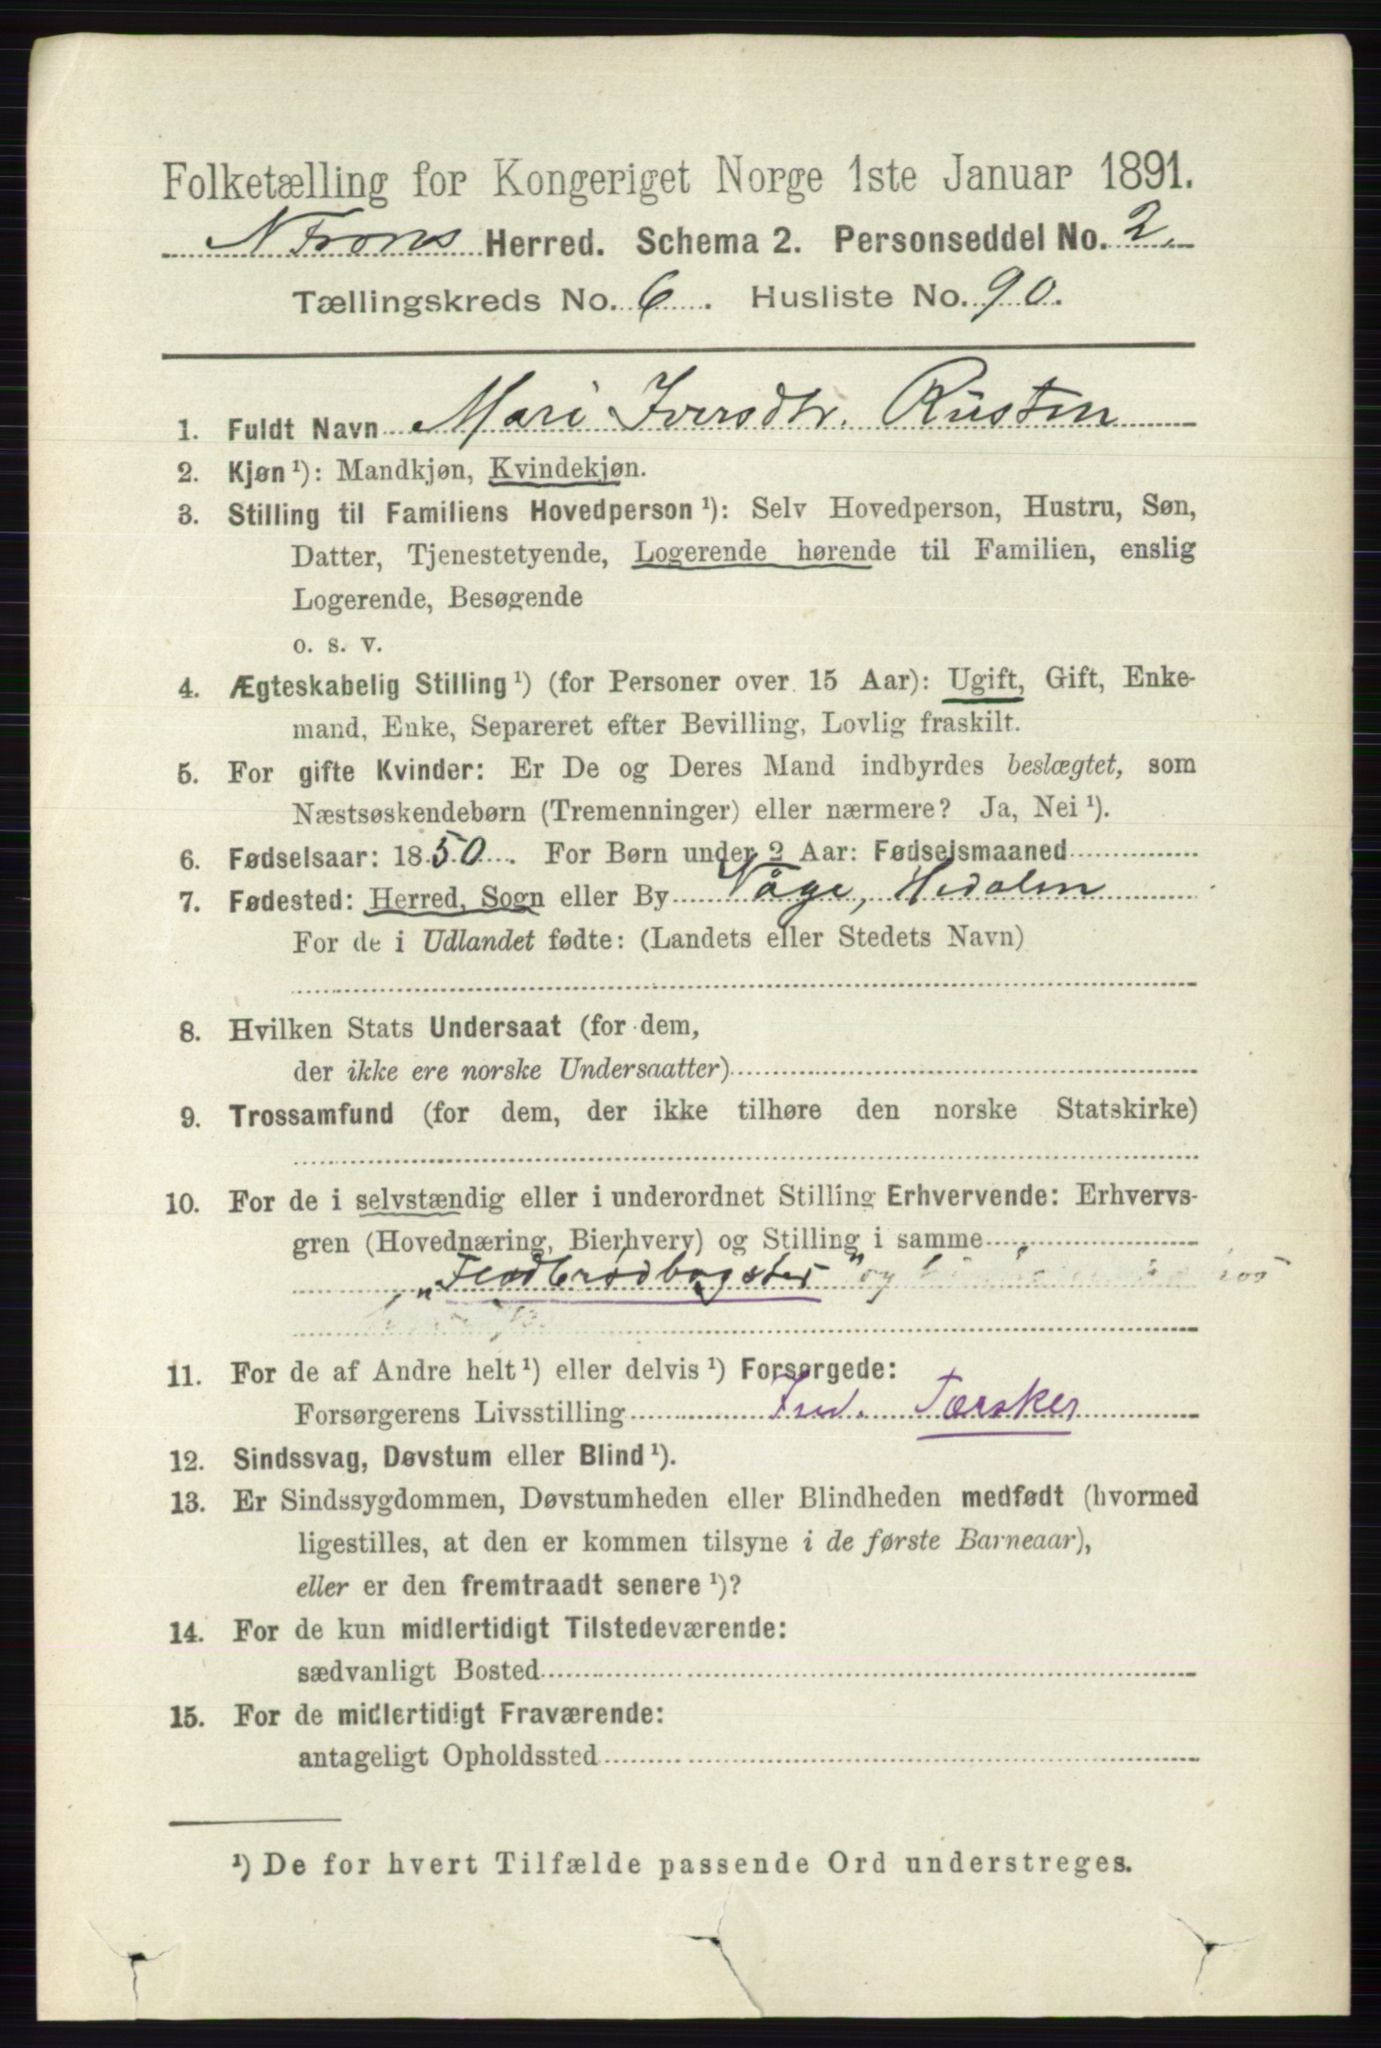 Folketælling for Kongeriget Norge 1ste Januar 1891.
N Frons Herred. Schema 2. Personseddel No. 2.
Tællingskreds No. 6. Husliste No. 90.
1. Fuldt Navn Mari Iversdtr. Rusten
2. Kjøn¹): Mandkjøn, Kvindekjøn.
3. Stilling til Familiens Hovedperson¹): Selv Hovedperson, Hustru, Søn,
Datter, Tjenestetyende, Logerende hørende til Familien, enslig
Logerende, Besøgende
o. s. v.
4. Ægteskabelig Stilling¹) (for Personer over 15 Aar): Ugift, Gift, Enke-
mand, Enke, Separeret efter Bevilling, Lovlig fraskilt.
5. For gifte Kvinder: Er De og Deres Mand indbyrdes beslægtet, som
Næstsøskendebørn (Tremenninger) eller nærmere? Ja, Nei¹).
6. Fødselsaar: 1850. For Børn under 2 Aar: Fødselsmaaned
7. Fødested: Herred, Sogn eller By Våge, Hedalen
For de i Udlandet fødte: (Landets eller Stedets Navn)
8. Hvilken Stats Undersaat (for dem,
der ikke ere norske Undersaatter)
9. Trossamfund (for dem, der ikke tilhøre den norske Statskirke)
10. For de i selvstændig eller i underordnet Stilling Erhvervende: Erhvervs-
gren (Hovednæring, Bierhverv) og Stilling i samme
"Fladbrødbagster" og
11. For de af Andre helt¹) eller delvis¹) Forsørgede:
Forsørgerens Livsstilling Ind. Tærsker
12. Sindssvag, Døvstum eller Blind¹).
13. Er Sindssygdommen, Døvstumheden eller Blindheden medfødt (hvormed
ligestilles, at den er kommen tilsyne i de første Barneaar),
eller er den fremtraadt senere¹)?
14. For de kun midlertidigt Tilstedeværende:
sædvanligt Bosted
15. For de midlertidigt Fraværende:
antageligt Opholdssted
¹) De for hvert Tilfælde passende Ord understreges.